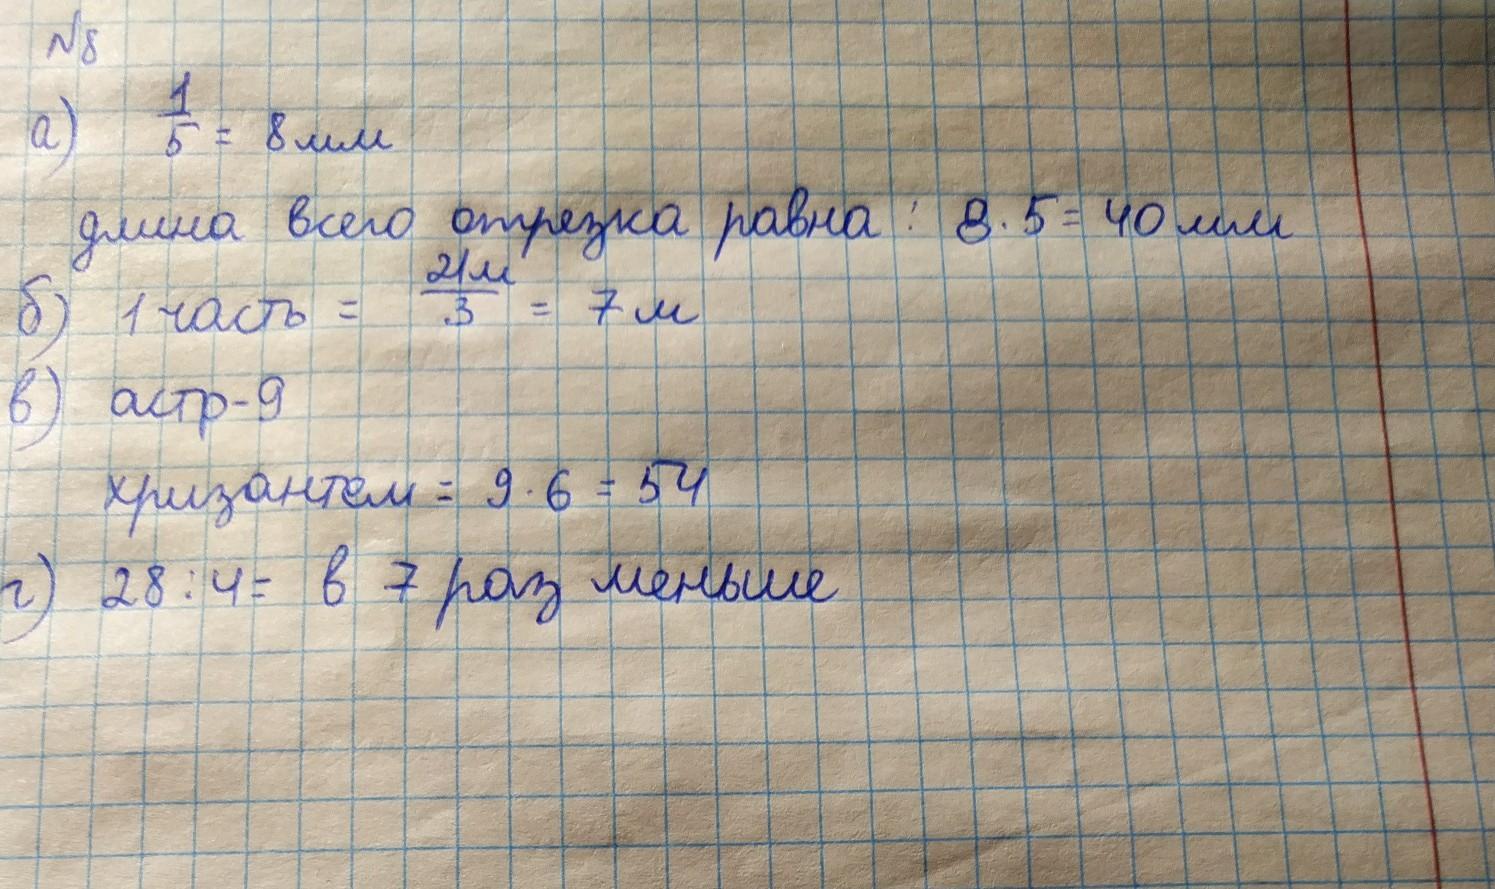 №8
а) 1/5 = 8 мм
длина всего отрезка равна: 8·5 = 40 мм
б) 1 часть = 21м/3 = 7 м
в) астр-9
хризантем = 9·6 = 54
г) 28:4= в 7 раз меньше